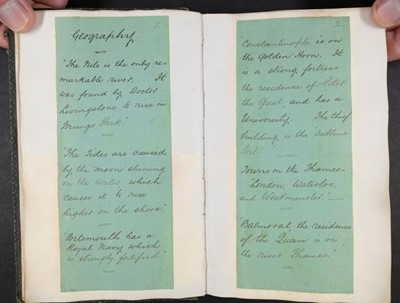 1.
Geography
"The Nile is the only re-
markable river. It
was found by Doctor
Livingstone to rise in
Mungo Park."
"The Tides are caused
by the moon shining
on the water which
causes it to rise
higher on the shore."
"Portsmouth has a
Royal Navy which
is strongly fortified."
2.
"Constantinople is on
the Golden Horn. It
is a strong fortress
the residence of
the Great, and has a
University. The chief
building is the Sublime
Port."
Towns on the Thames—
"London, Waterloo,
and Westminster."
"Balmoral, the residence
of the Queen is on
the river Thames."